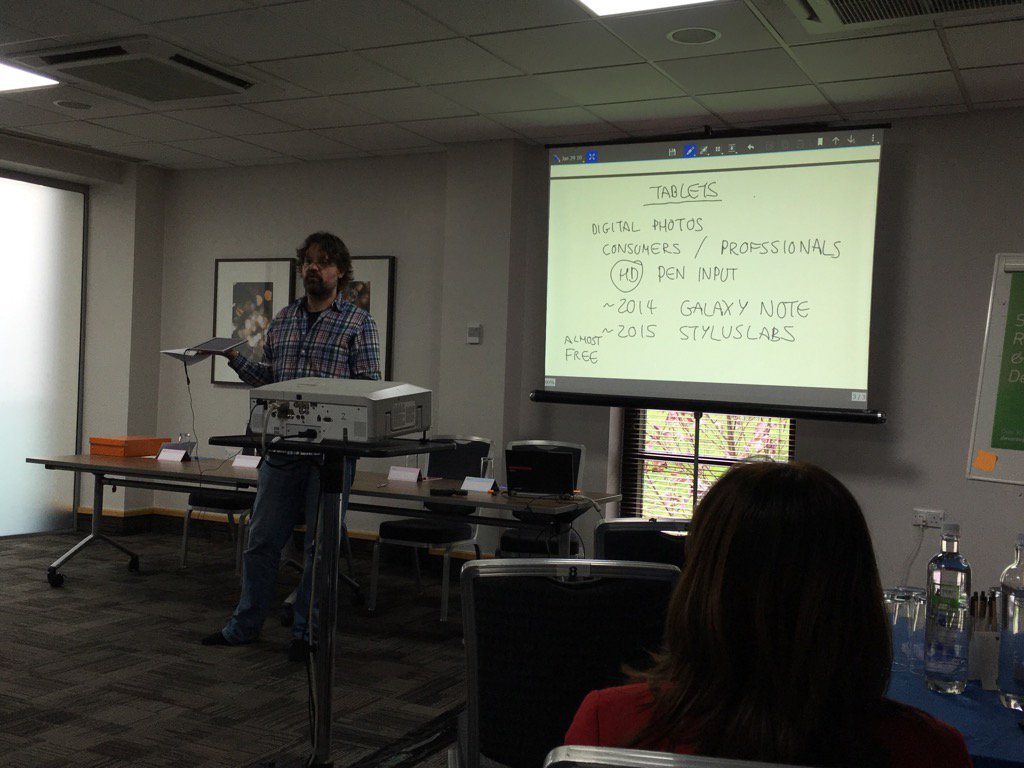 TABLETS
DIGITAL PHOTOS
CONSUMERS / PROFSSIONALS
HD PEN INPUT
~2014 GALAXY NOTE
~2015 STYLUSLABS
ALMOST
FREE
3/3